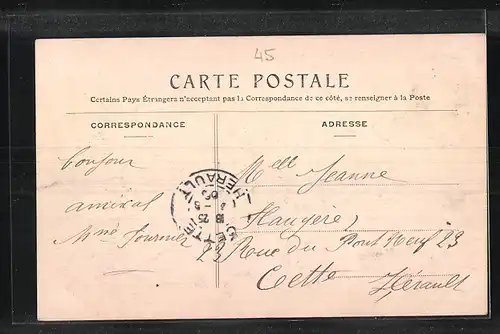 45
CARTE POSTALE
Certains Pays Étrangers n'acceptant pas la Correspondance de ce côté, se renseigner à la Poste
CORRESPONDANCE
ADRESSE
Bonjour
amical
Mme Fournier
Melle Jeanne
23 Rue du Pont Neuf 23
Cette
Hérault
CETTE
HERAULT